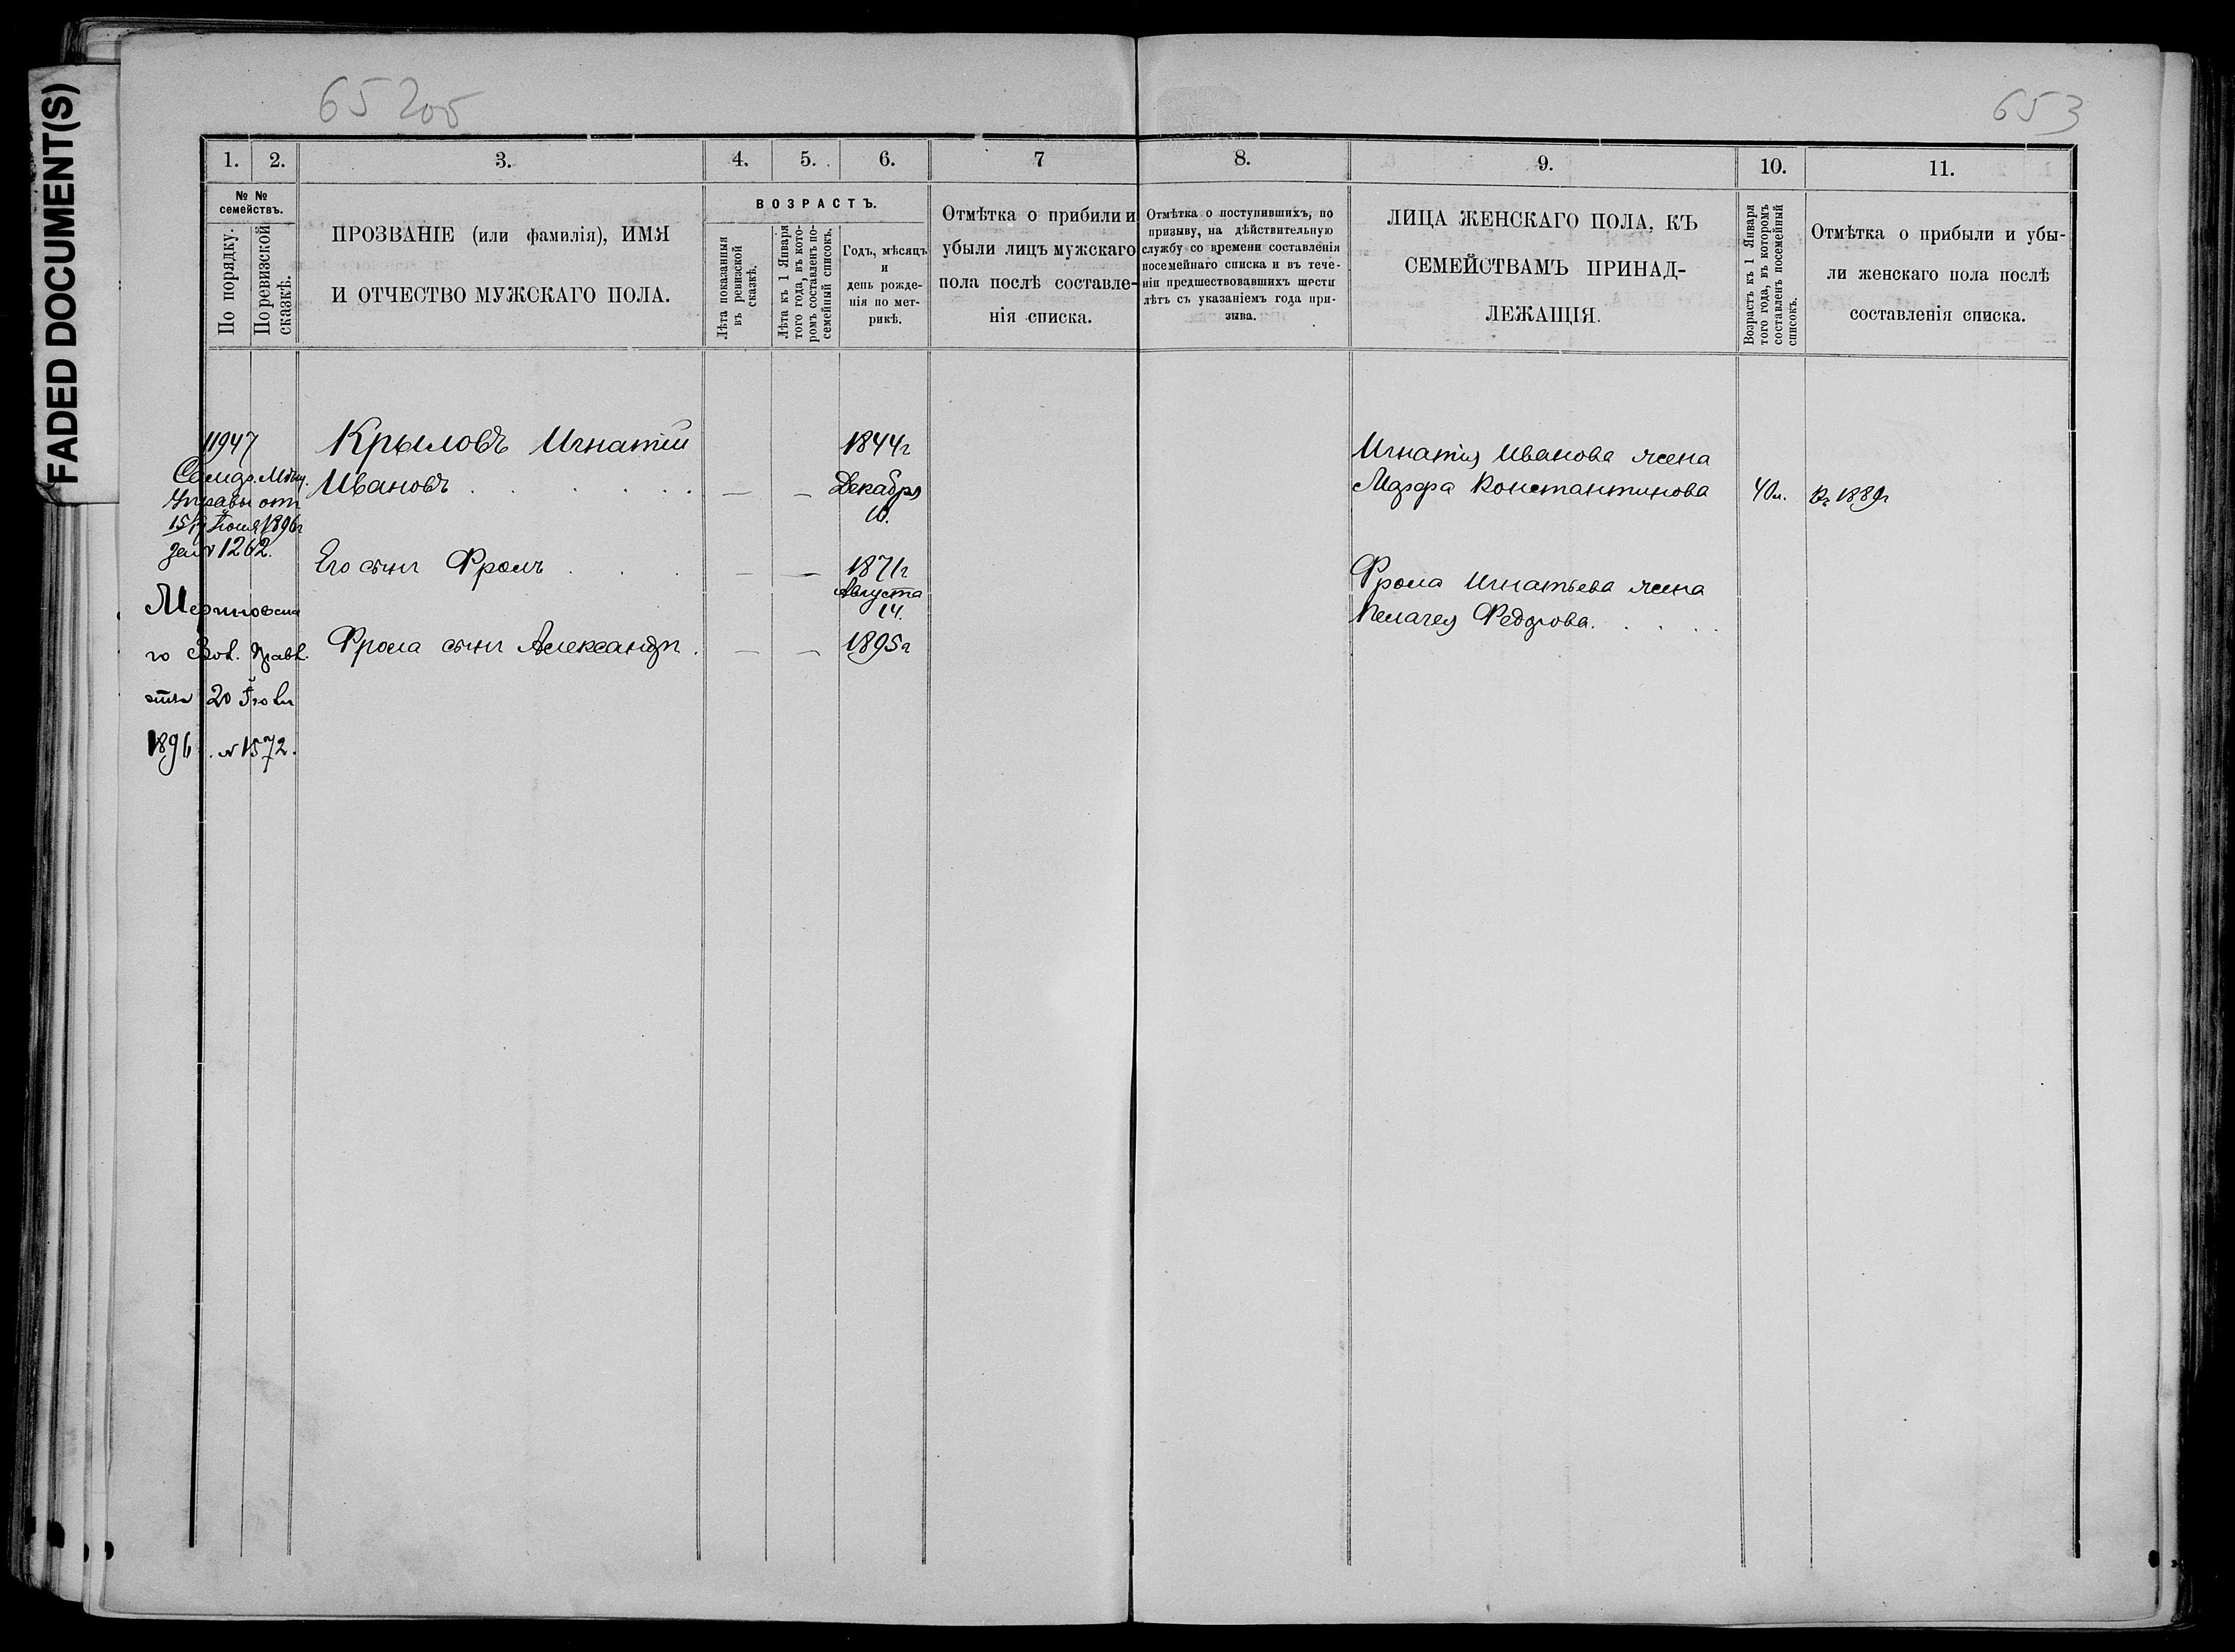 FADED DOCUMENT(S)
65 200
653
1. 2. 3. 4. 5. 6. 7 8. 9. 10. 11.
№ №
семействъ.
По порядку.
По ревизской
сказкѣ.
ПРОЗВАНІЕ (или фамилія), ИМЯ
И ОТЧЕСТВО МУЖСКАГО ПОЛА.
ВОЗРАСТЪ.
Лѣта показанныя
въ ревизской
сказкѣ.
Лѣта къ 1 Января
того года, въ кото-
ромъ составленъ по-
семейный списокъ.
Годъ, мѣсяцъ
и
день рожде-
нія по мет-
рикѣ.
Отмѣтка о прибили и
убыли лицъ мужскаго
пола послѣ составле-
нія списка.
Отмѣтка о поступившихъ, по
призыву, на дѣйствительную
службу со времени составленія
посемейнаго списка и въ тече-
ніи предшествовавшихъ шести
лѣтъ съ указаніемъ года при-
зыва.
ЛИЦА ЖЕНСКАГО ПОЛА, КЪ
СЕМЕЙСТВАМЪ ПРИНАД-
ЛЕЖАЩІЯ.
Возрастъ къ 1 Января
того года, въ которомъ
составленъ посемейный
списокъ.
Отмѣтка о прибыли и убы-
ли женскаго пола послѣ
составленія списка.
11947
Самар. Мѣщ.
Управы отъ
15 Іюня 1896г
за № 1262.
20
1896 . № 1572.
Крыловъ Игнатій
Ивановъ . . . . . — —
1844г
Декабря
16.
Его сынъ Фролъ . . . — —
1871г
Августа
14.
Фрола сынъ Александръ . — — 1895г
Игнатія Иванова жена
Марфа Константинова 40л. 1889г
Фрола Игнатьева жена
Пелагея Федорова . . . .